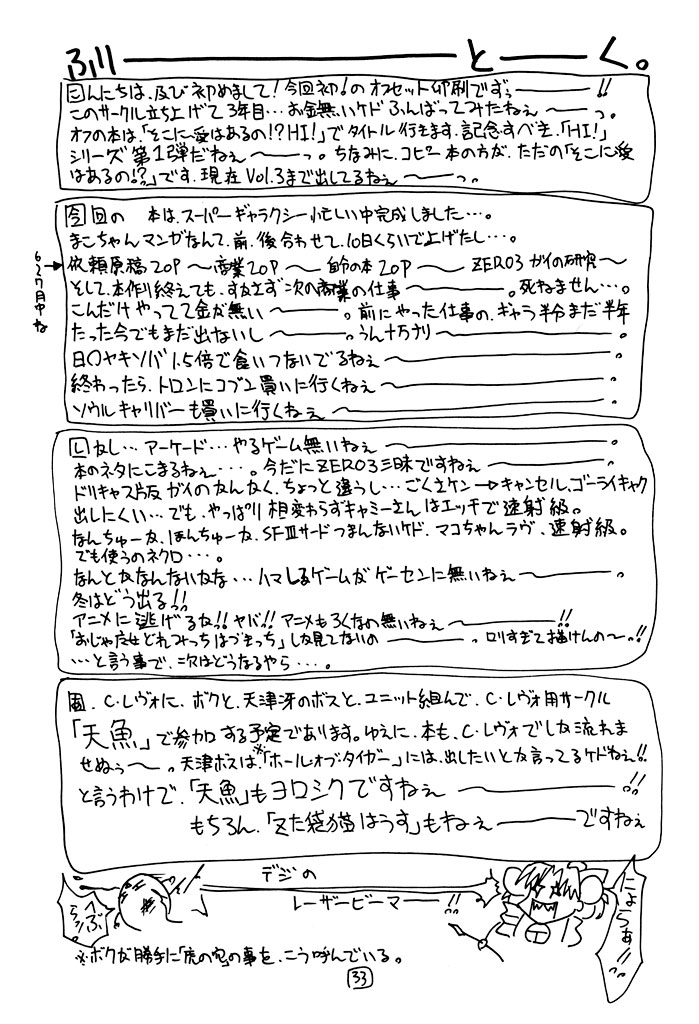 ふリーーーーとーーく。
こんにちは、及び初めまして!今回初!のオフセット印刷ですぅ―――!!
このサークル立ち上げて3年目…お金無いケドふんばってみたねぇ〜――っ。
オフの本は、「そこに愛はあるの!?HI!」でタイトル行きます、記念すべき「HI!」
シリーズ第1弾だねぇ〜――っ。ちなみに、コピー本の方が、ただの「そこに愛
はあるの!?」です、現在Vol.3まで出してるねぇ〜――っ。
今回の 本は、スーパーギャラクシー忙しい中完成しました…。
まこちゃんマンガなんて、前、後合わせて、10日くらいで上げたし…。
6と7月中ね
依頼原稿20P〜商業20P〜自分の本20P〜ZERO3ガイの研究〜
そして、本作り終えても、すぐさま次の商業の仕事―――。死ねません…。
こんだけやってて金が無い―――。前にやった仕事の、ギャラ半分まだ半年
たった今でもまだ出ないし〜―――。うん十万ナリ〜―――。
日〇ヤキソバ1.5倍で食いつないでるねぇ〜―――。
終わったら、トロンにコブン買いに行くねぇ〜―――。
ソウルキャリバーも買いに行くねぇ〜―――。
しなし…アーケード…やるゲーム無いねぇ〜―――。
本のネタにこまるねぇ・・・。今だにZERO3三昧ですねぇ〜―――。
ドリキャス版ガイのなんなく、ちょっと違うし…ごくさケン→キャンセル、ゴーライキャク
出しにくい…でも、やっぱり相変わらずキャミーさんはエッチで速射級。
なんちゅーか、ほんちゅーか、SFⅢサードつまんないケド、マコちゃんラヴ、速射級。
でも使うのネクロ・・・。
なんとかなんないかな…ハマしるゲームがゲーセンに無いねぇ〜―――。
冬はどう出る!!
アニメに逃げるな!!ヤバ!!アニメもろくなの無いねぇ〜―――!!
「おじゃ魔女どれみっちはづきっち」しか見てないの―――。ロリすぎて描けんの〜。!!
…と言う事で、次はどうなるやら・・・。
、C・レヴォに、ボクと、天津冴のボスと、ユニット組んで、C・レヴォ用サークル
「天魚」で参加する予定であります。ゆえに、本も、C・レヴォでしか流れま
せぬぅ〜―。天津ボスは、「※ホールオブ・タイガー」には、出したいとか言ってるケドねぇ!!
と言うわけで、「天魚」もヨロシクですねぇ〜―――!!
もちろん、「ずた袋猫はうす」もねぇ―――ですねぇ
デジの
レーザービーマ――!!
へぶらっ!!
にょらぁ!!
※ボクが勝手に「虎の穴」の事を、こう呼んでいる。
33